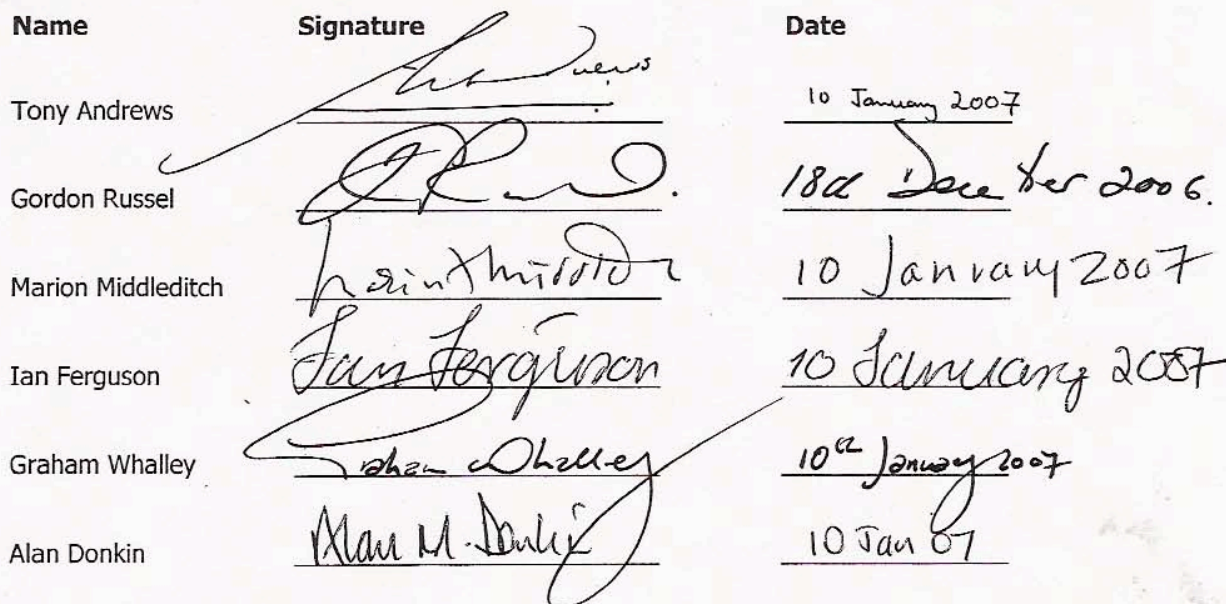 Name Signature Date
Tony Andrews 10 January 2007
Gordon Russel 18th December 2006.
Marion Middleditch 10 January 2007
Ian Ferguson Ian Ferguson 10 January 2007
Graham Whalley Graham Whalley 10th January 2007
Alan Donkin Alan M. Donkin 10 Jan 07